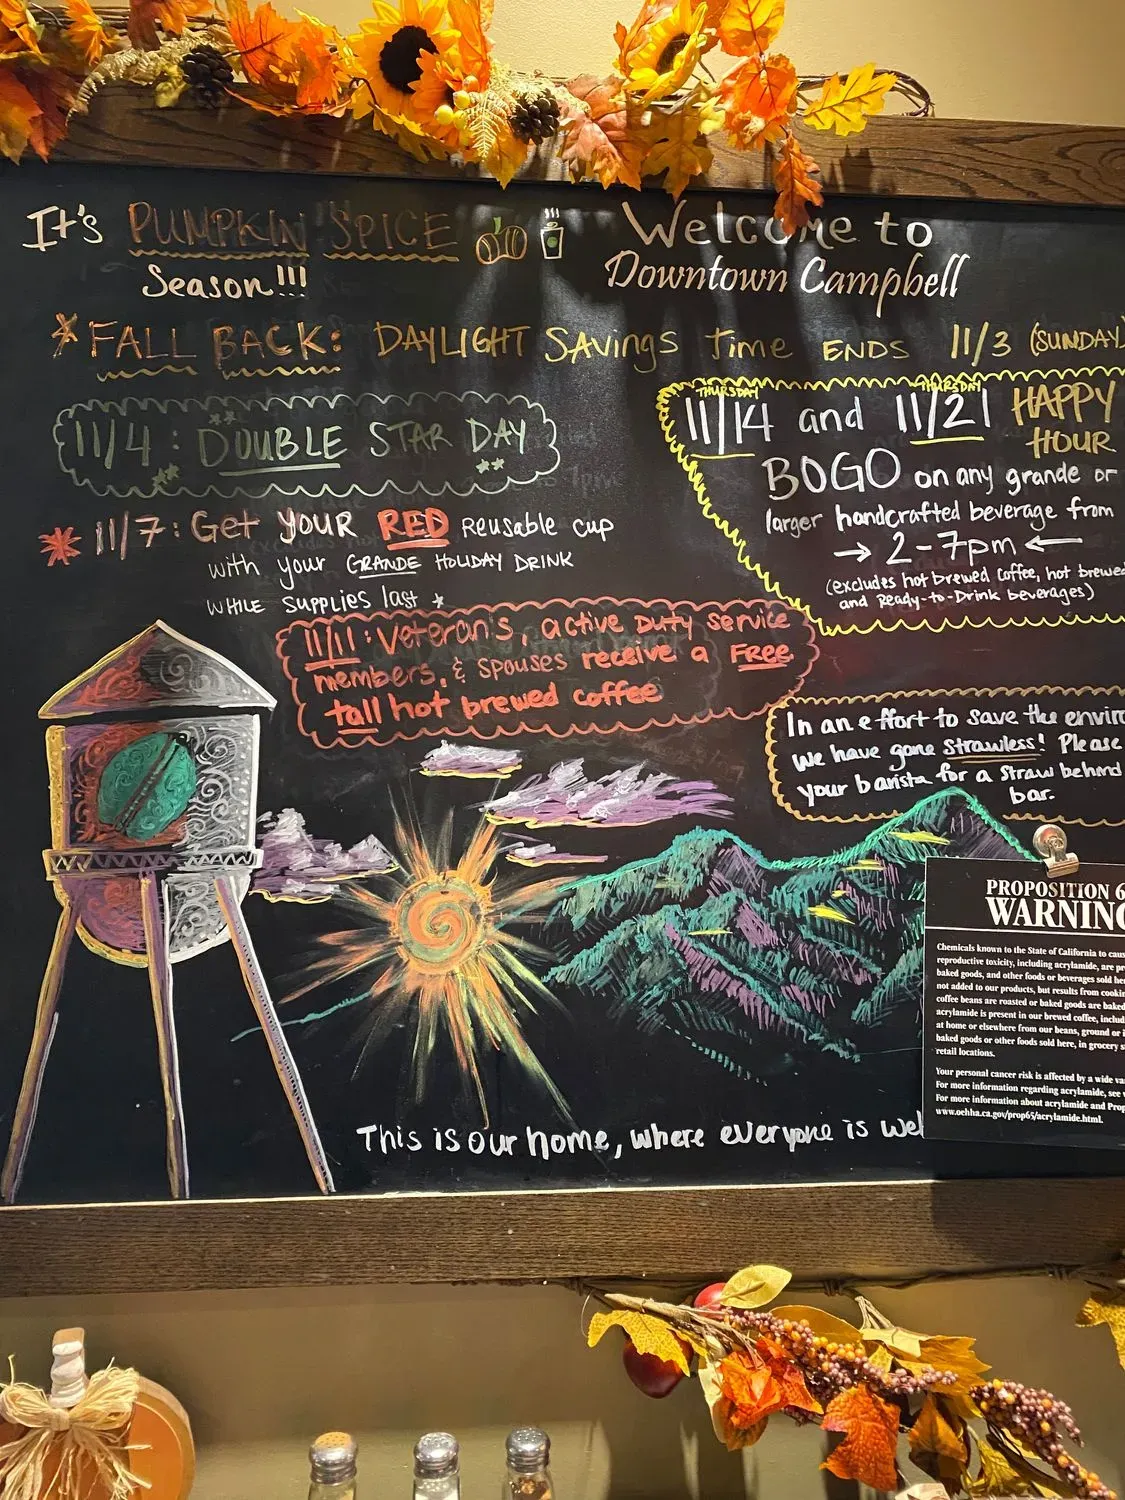 It's PUMPKIN SPICE
Season!!!
Welcome to
Downtown Campbell
FALL BACK: DAYLIGHT SAVINGS Time ENDS 11/3 (SUNDAY
11/4: DOUBLE STAR DAY
11/7: Get YOUR RED REUSABLE CUP
with your GRANDE HOLIDAY DRINK
WHILE SUPPLIES last
11/11: Veteran's, active Duty service
members, & spouses receive a FREE
tall hot brewed coffee
THURSDAY THURSDAY
11/14 and 11/21 HAPPY
HOUR
BOGO on any grande or
larger handcrafted beverage from
→ 2-7pm ←
(excludes hot brewed coffee, hot brewed
and Ready-to-Drink beverages)
In an effort to save the envir
we have gone strawless! Please
your barista for a straw behind
bar.
PROPOSITION 6
WARNING
Chemicals known to the State of California to
reproductive toxicity, including acrylamide, are
baked goods, and other foods or beverages sold
not added to our products, but results from
coffee beans are roasted or baked goods are
acrylamide is present in our brewed coffee,
at home or elsewhere from our beans, ground or
baked goods or other foods sold here, in grocery
retail locations.
Your personal cancer risk is affected by a wide
For more information regarding acrylamide, see
For more information about acrylamide and
www.oehha.ca.gov/prop65/acrylamide.html.
This is our home, where everyone is wel